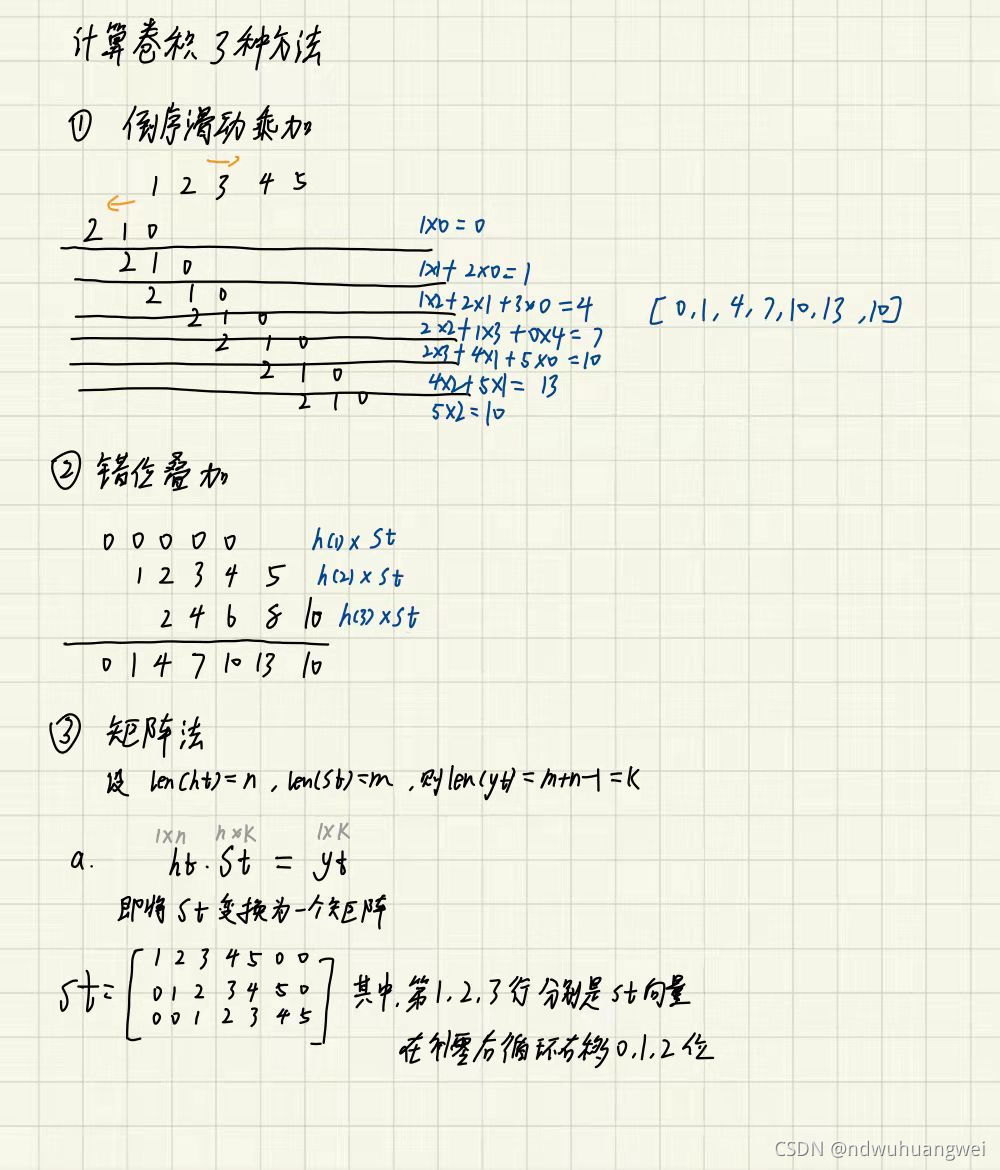 计算卷积 3种方法
① 倒序滑动乘加
→
1 2 3 4 5
←
2 1 0 1×0=0
2 1 0 1×1+2×0=1
2 1 0 1×2+2×1+3×0=4 [0,1,4,7,10,13,10]
2 1 0 2×2+1×3+0×4=7
2 1 0 2×3+4×1+5×0=10
2 1 0 4×2+5×1=13
2 1 0 5×2=10
② 错位叠加
0 0 0 0 0 h(1)×St
1 2 3 4 5 h(2)×St
2 4 6 8 10 h(3)×St
0 1 4 7 10 13 10
③ 矩阵法
设 len(ht)=n,len(St)=m,则len(yt)=m+n-1=K
1×n n×K 1×K
a. ht·St=yt
即将St变换为一个矩阵
1 2 3 4 5 0 0
St=[0 1 2 3 4 5 0] 其中,第1,2,3行分别是St向量
0 0 1 2 3 4 5
在补零后循环右移0,1,2位
CSDN @ndwuhuangwei